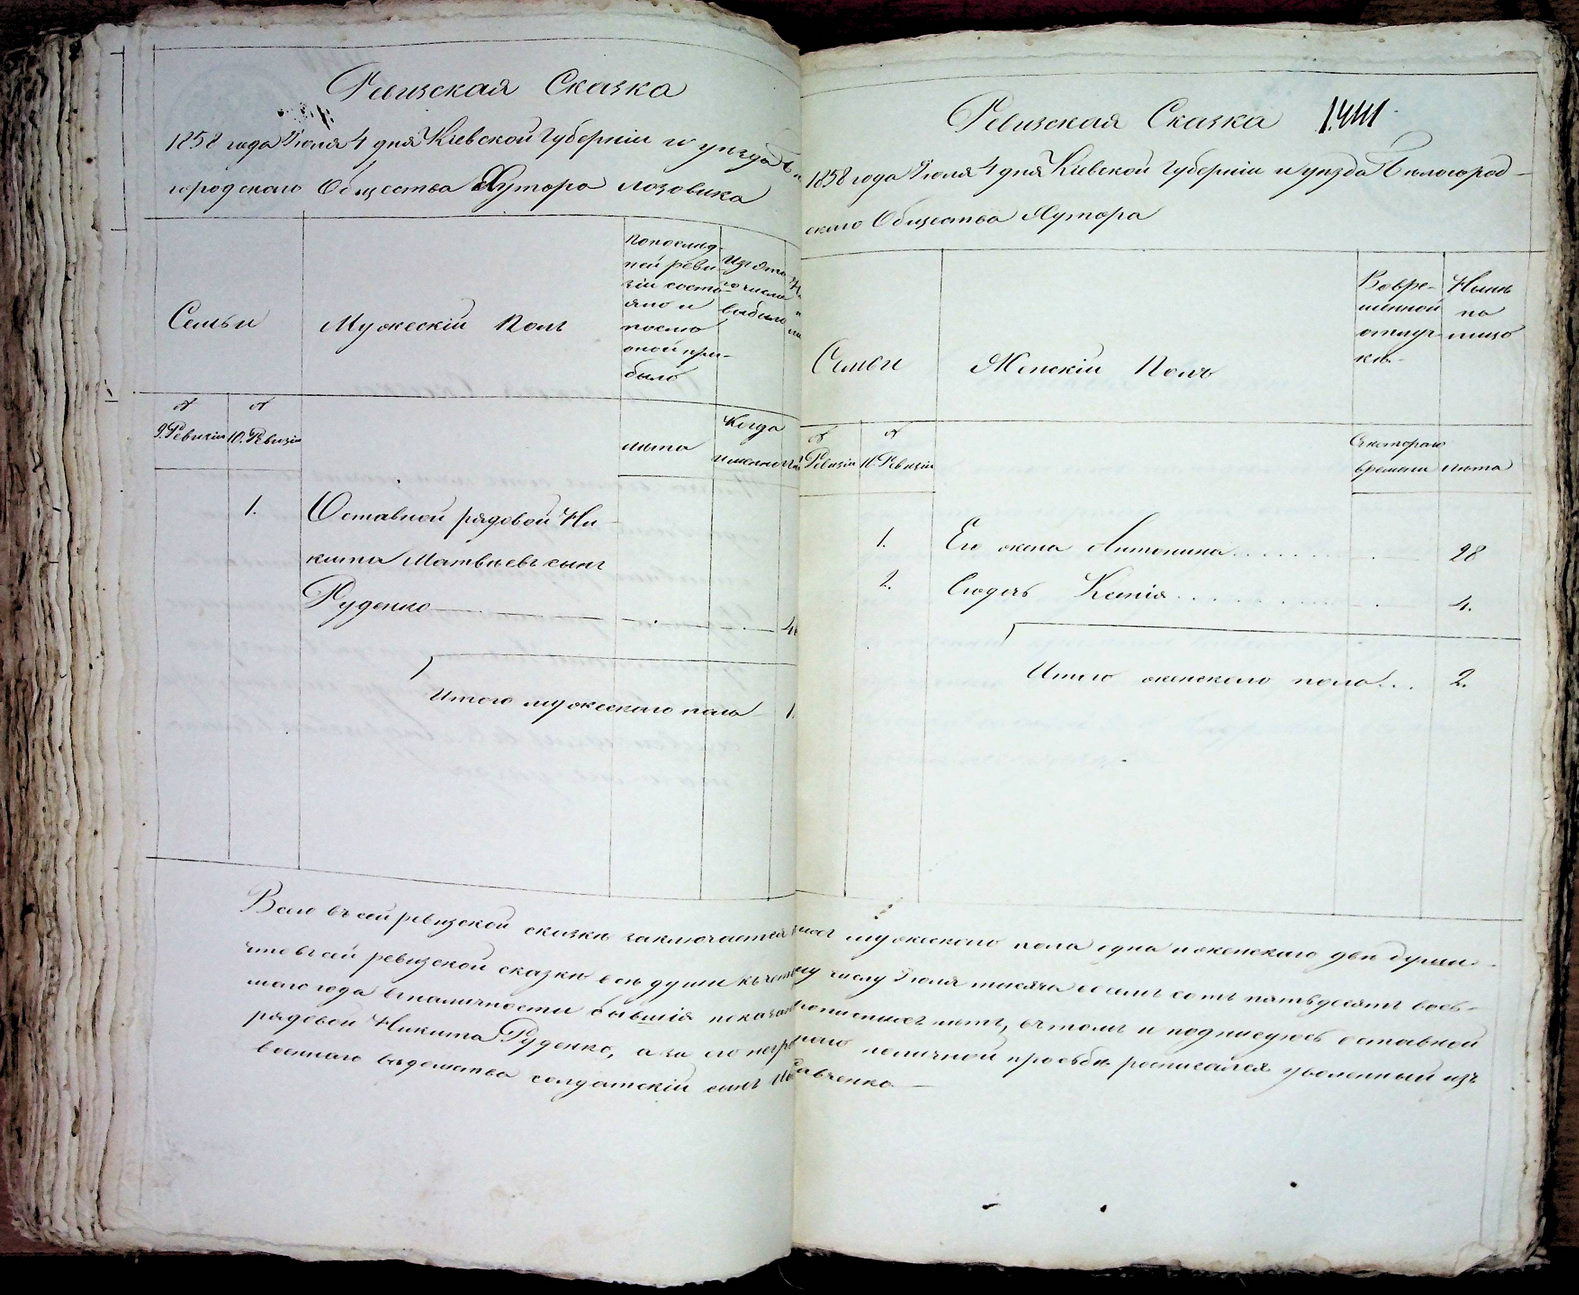 Ревизская Сказка
1858 года Июля 4 дня Кіевской Губерніи и уѣзда Бѣ
городскаго Общества Хутора Лозовика
Семьи
Мужескій Полъ
По послѣд-
ней реви-
зіи состо-
яло и
послѣ
оной при-
было
Изъ Это
го числа
выбыло
№
9. Ревизіи
№
10. Ревизіи
лѣта
Когда
именно
1.
Отставной рядовой Ни-
кита Матвѣевъ сынъ
Руденко
Итого мужескаго пола
1.
Ревизская Сказка
1858 года Июля 4 дня Кіевской Губерніи и уѣзда Бѣлогород-
скаго Общества Хутора
Семьи
Женскій Полъ
Во вре-
менной
отлуч-
кѣ
Нынѣ
на
лицо
№
Ревизіи
№
10. Ревизіи
Съ котораго
времени
лѣта
1. Его жена Антонина 28
2. Ксенія 4.
Итого женскаго пола 2.
Всего въ сей ревизской сказкѣ заключается мужескаго пола одна и женскаго двѣ души
что въ сей ревизской сказкѣ всѣ души къ числу Июля тысяча восемь сотъ пятьдесятъ вось-
маго года въ наличности бывшія показаны и прописныхъ нѣтъ, въ томъ и подписуюсь отставной
рядовой Никита Руденко, а за его личной просьбѣ росписался уволенный изъ
военнаго вѣдомства солдатскій сынъ